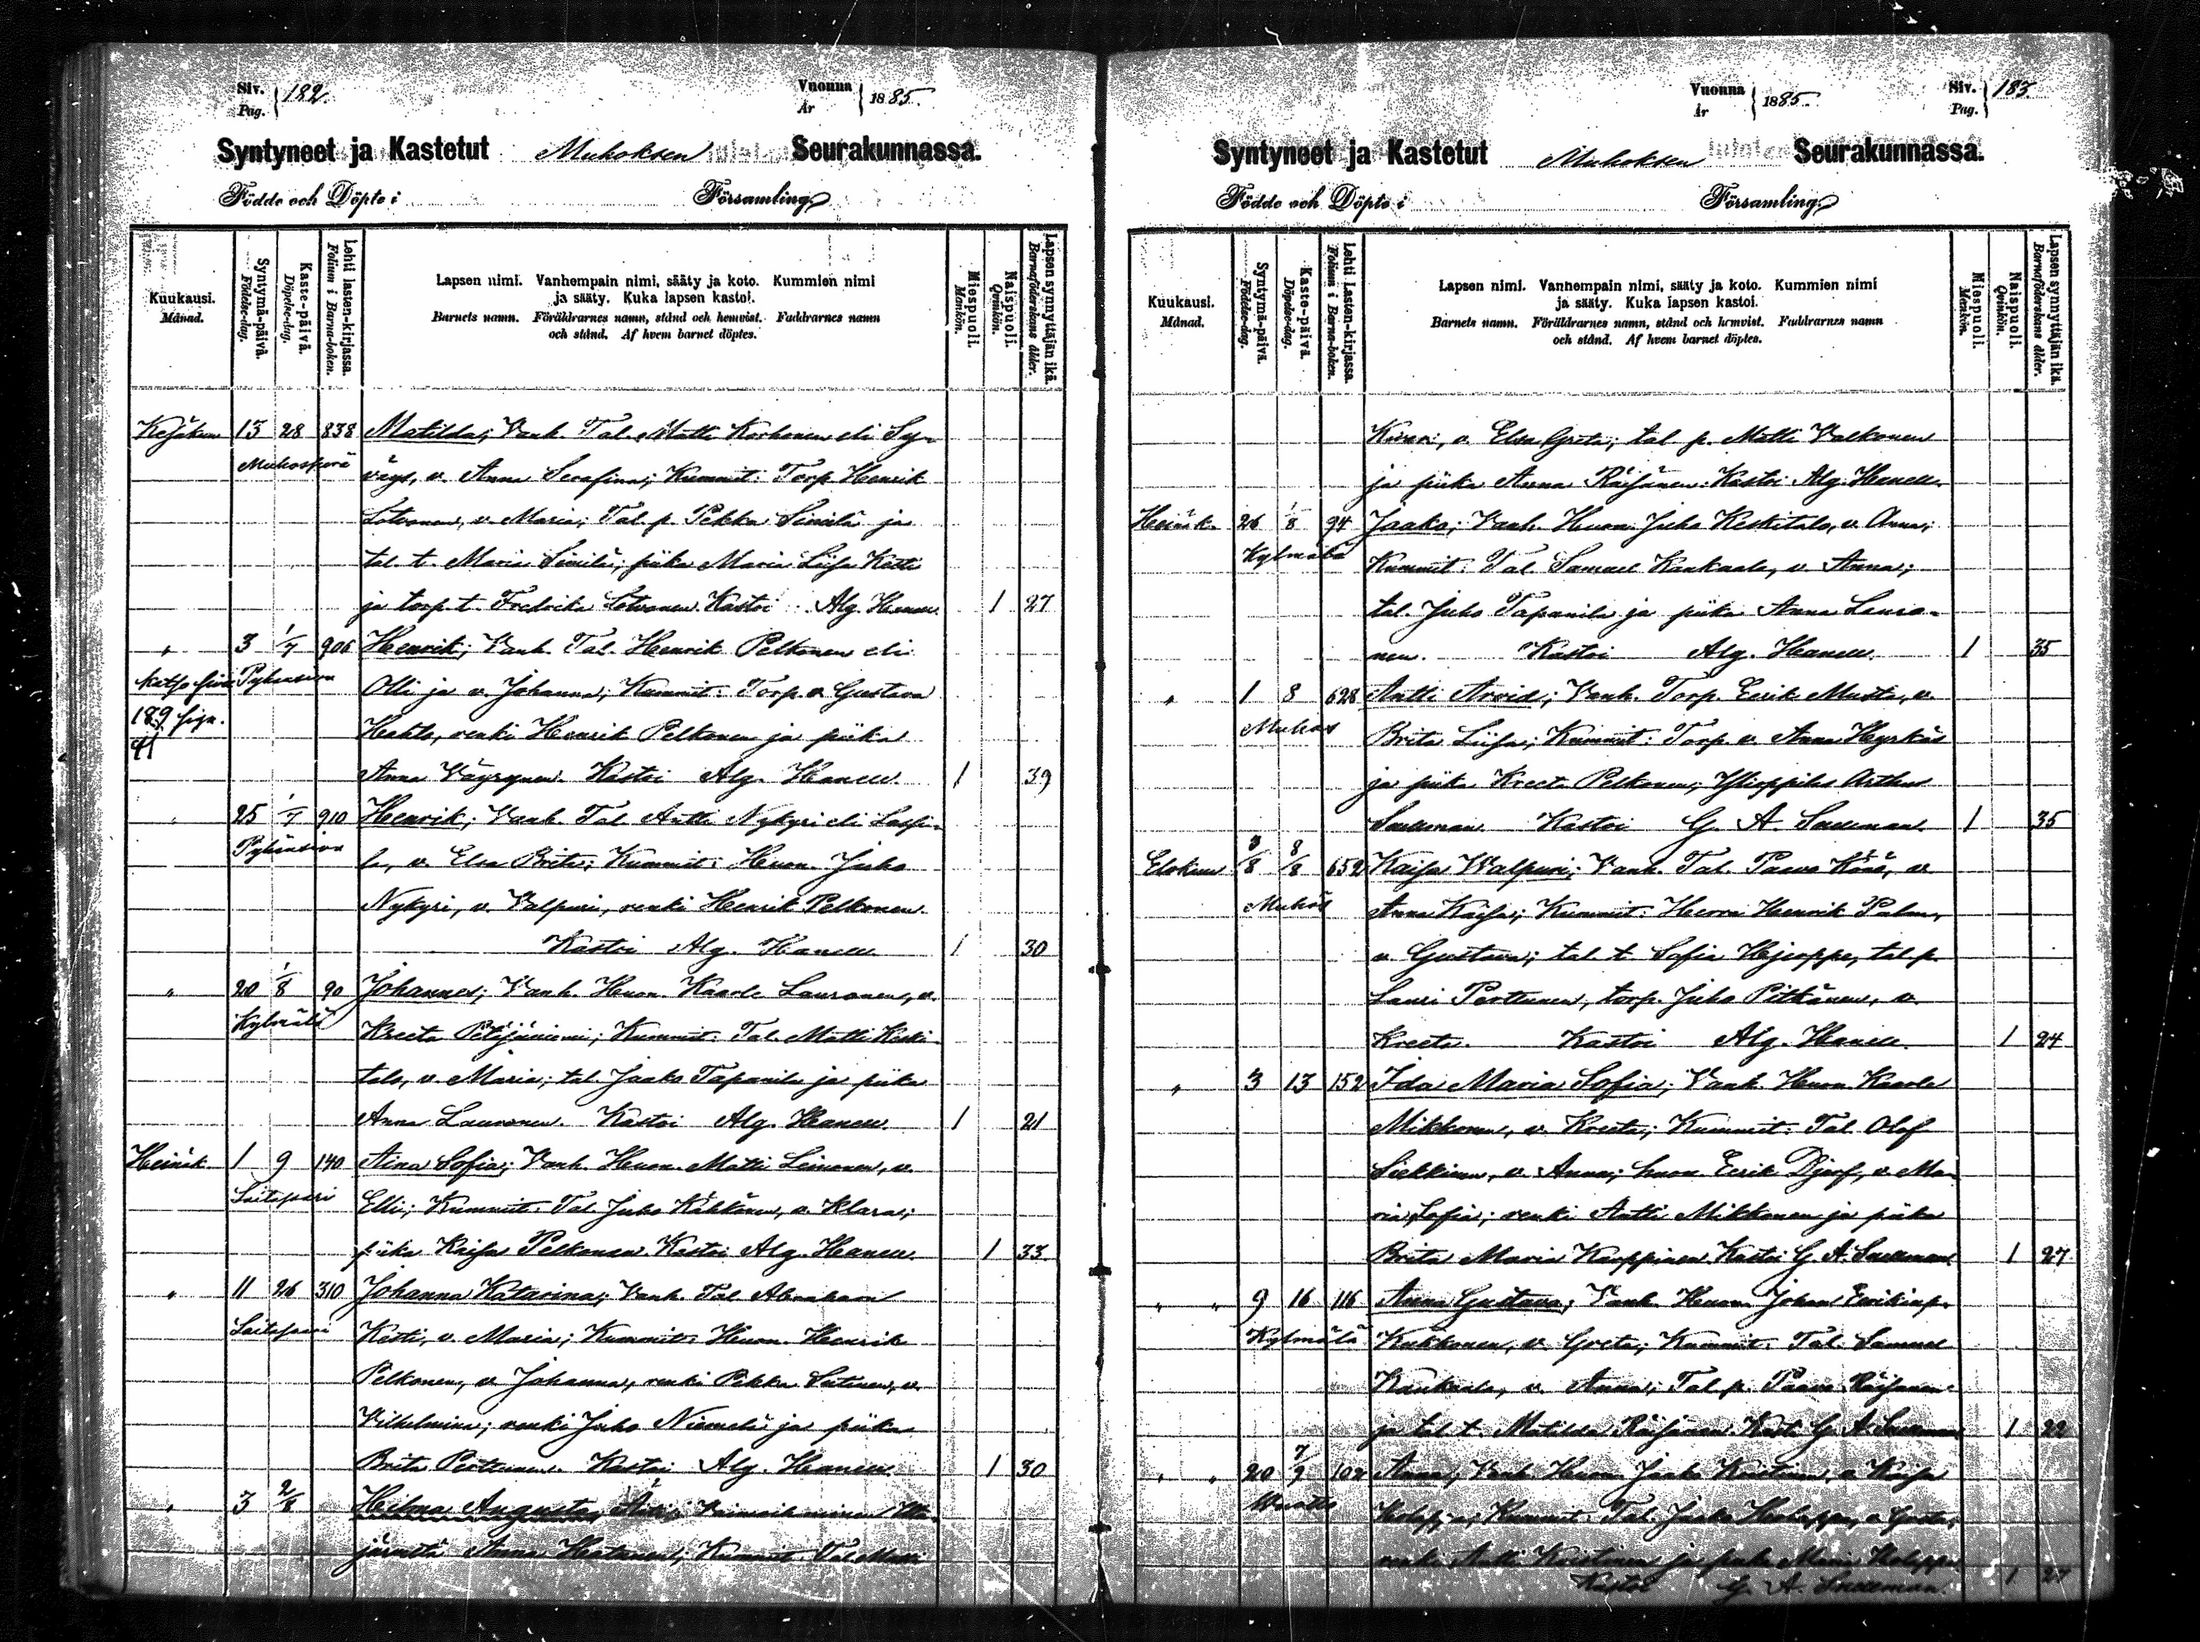 Siv. Pag. 182. Vuonna År 1885.
Syntyneet ja Kastetut Muhoksen Seurakunnassa.
Födde och Döpte i Församling
Kuukausi. Månad.
Syntymä-päivä. Födelse-dag.
Kaste-päivä. Döpelse-dag.
Lehti lasten-kirjassa. Folium i Barna-boken.
Lapsen nimi. Vanhempain nimi, sääty ja koto. Kummien nimi
ja sääty. Kuka lapsen kastoi.
Barnets namn. Föräldrarnes namn, stånd och hemvist. Faddrarnes namn
och stånd. Af hvem barnet döptes.
Miespuoli. Mankön.
Naispuoli. Qvinkön.
Lapsen synnyttäjän ikä. Barnaföderskans ålder.
Kesäkuu 13 28 838 Matilda; Vanh. Tal. Matti Korhonen eli
v. Anna Serafina; Kummit: Torp. Henrik
v. Maria; Tal. p. Pekka Similä ja
tal. t. Maria Similä; piika Maria Liisa Kesti
ja torp. t. Fredrika Kastoi Alg. Hanell. 1 27
" 3 1/7 906 Henrik; Vanh. Tal. Henrik Pelkonen eli
Katso sivu Pyhänsivu Olli ja v. Johanna; Kummit: Torp. v. Gustava
189 Heikki, renki Henrik Pelkonen ja piika
41 Anna Väyrynen. Kastoi Alg. Hanell. 1 39
" 25 1/7 910 Henrik; Vanh. Tal. Antti Nykyri eli
Pyhänsivu v. Elsa Brita; Kummit: Huon. Juho
Nykyri, v. Valpuri, renki Henrik Pelkonen.
Kastoi Alg. Hanell 1 30
" 20 1/8 90 Johannes; Vanh. Huon. Kaarle Lauronen, v.
Kylmälä Kreeta Petäjäniemi; Kummit: Tal. Matti Keski
talo, v. Maria; tal. Jaako Tapanila ja piika
Anna Lauronen. Kastoi Alg. Hanell. 1 21
Heinäk. 1 9 140 Aina Sofia; Vanh. Huon. Matti Leinonen, v.
Laitasaari Elli; Kummit: Tal. Juho Kähkönen, v. Klara;
piika Kaisa Pelkonen Kastoi Alg. Hanell. 1 33
" 11 26 310 Johanna Katarina; Vanh. Tal. Abraham
Laitasaari Kesti, v. Maria; Kummit: Huon. Henrik
Pelkonen, v. Johanna, renki Pekka v.
Vilhelmina; renki Juho Niemelä ja piika
Brita Perttunen. Kastoi Alg. Hanell. 1 30
" 3 2/8 Hilma Augusta; Äiti:
Anna Kummit: Tal. Matti
Vuonna År 1885. Siv. Pag. 183.
Syntyneet ja Kastetut Muhoksen Seurakunnassa.
Födde och Döpte i Församling
Kuukausi. Månad.
Syntymä-päivä. Födelse-dag.
Kaste-päivä. Döpelse-dag.
Lehti Lasten-kirjassa. Folium i Barna-boken.
Lapsen nimi. Vanhempain nimi, sääty ja koto. Kummien nimi
ja sääty. Kuka lapsen kastoi.
Barnets namn. Föräldrarnes namn, stånd och hemvist. Faddrarnes namn
och stånd. Af hvem barnet döptes.
Miespuoli. Mankön.
Naispuoli. Qvinkön.
Lapsen synnyttäjän ikä. Barnaföderskans ålder.
v. Elsa Greta; tal. p. Matti Valkonen
ja piika Anna Räisänen. Kastoi Alg. Hanell.
Heinäk. 26 1/8 94 Jaako; Vanh. Huon. Juho Keskitalo, v. Anna;
Kylmälä Kummit: Tal. Samuel Kaukaala, v. Anna;
tal. Juho Tapanila ja piika Anna Lauro-
nen. Kastoi Alg. Hanell. 1 35
" 1 8 628 Antti Arvid; Vanh. Torp. Eerik Musta, v.
Muhos Brita Liisa; Kummit: Torp. v. Anna Hyrkäs
ja piika Kreeta Pelkonen; Ylioppilas Arthur
Snellman. Kastoi G. A. Snellman. 1 35
Elokuu 3/8 8/8 652 Kaisa Walpuri; Vanh. Tal. Paavo v.
Muhos Anna Kaisa; Kummit: Herra Henrik Palm,
v. Gustava; tal. t. Sofia tal. p.
Lauri Perttunen, torp. Juho Pitkänen, v.
Kreeta. Kastoi Alg. Hanell. 1 24
" 3 13 152 Ida Maria Sofia; Vanh. Huon. Kaarle
Mikkonen, v. Kreeta; Kummit: Tal. Olof
Siekkinen, v. Anna; huon. Eerik v. Ma-
ria Sofia; renki Antti Mikkonen ja piika
Brita Maria Karppinen Kastoi G. A. Snellman. 1 27
" " 9 16 116 Anna Gustava; Vanh. Huon. Johan Eerikinp.
Kylmälä Kukkonen, v. Greta; Kummit: Tal. Samuel
Kaukaala, v. Anna; Tal. p. Paavo Räisänen
ja tal. t. Matilda Räisänen. Kasti G. A. Snellman 1 22
" " 20 7/9 102 Anna; Vanh. Huon. Jaako v. Kaisa
Kummit: Tal. Jaako v. Greta;
renki Antti ja piika Maria
Kastoi G. A. Snellman. 1 27